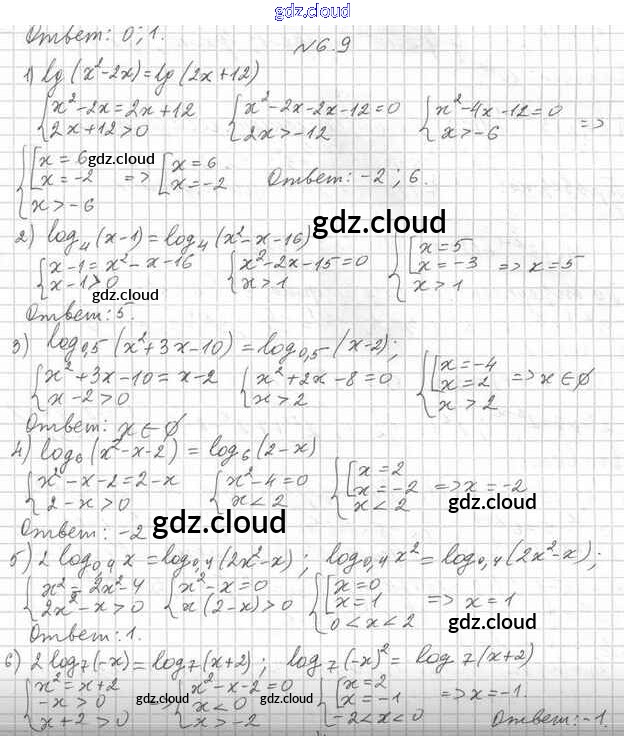 gdz.cloud
Ответ: 0; 1.
N 6.9
1) lg (x²-2x) = lg (2x+12)
{x²-2x=2x+12 {x²-2x-2x-12=0 {x²-4x-12=0 =>
{2x+12>0 {2x>-12 {x>-6
{[x=6 gdz.cloud => [x=6
{[x=-2 [x=-2 Ответ: -2; 6.
{x>-6
gdz.cloud
2) log₄(x-1) = log₄(x²-x-16)
{x-1=x²-x-16 {x²-2x-15=0 {[x=5
{x-1>0 {x>1 {[x=-3 => x=5
gdz.cloud {x>1 gdz.cloud
Ответ: 5.
3) log₀,₅(x²+3x-10) = log₀,₅(x-2);
{x²+3x-10=x-2 {x²+2x-8=0 {[x=-4
{x-2>0 {x>2 {[x=2 => x∈∅
{x>2
Ответ: x∈∅
4) log₆(x²-x-2) = log₆(2-x)
{x²-x-2=2-x {x²-4=0 {[x=2
{2-x>0 {x<2 {[x=-2 => x=-2
{x<2 gdz.cloud
Ответ: -2 gdz.cloud
5) 2 log₀,₄ x = log₀,₄(2x²-x); log₀,₄ x² = log₀,₄(2x²-x);
{x²=2x²-4 {x²-x=0 {[x=0
{2x²-x>0 {x(2-x)>0 {[x=1 => x=1
{0<x<2 gdz.cloud
Ответ: 1.
6) 2 log₇(-x) = log₇(x+2); log₇(-x)² = log₇(x+2)
{x²=x+2 {x²-x-2=0 {[x=2
{-x>0 gdz.cloud => {x<0 {[x=-1 => x=-1.
{x+2>0 {x>-2 {-2<x<0 gdz.cloud Ответ: -1.